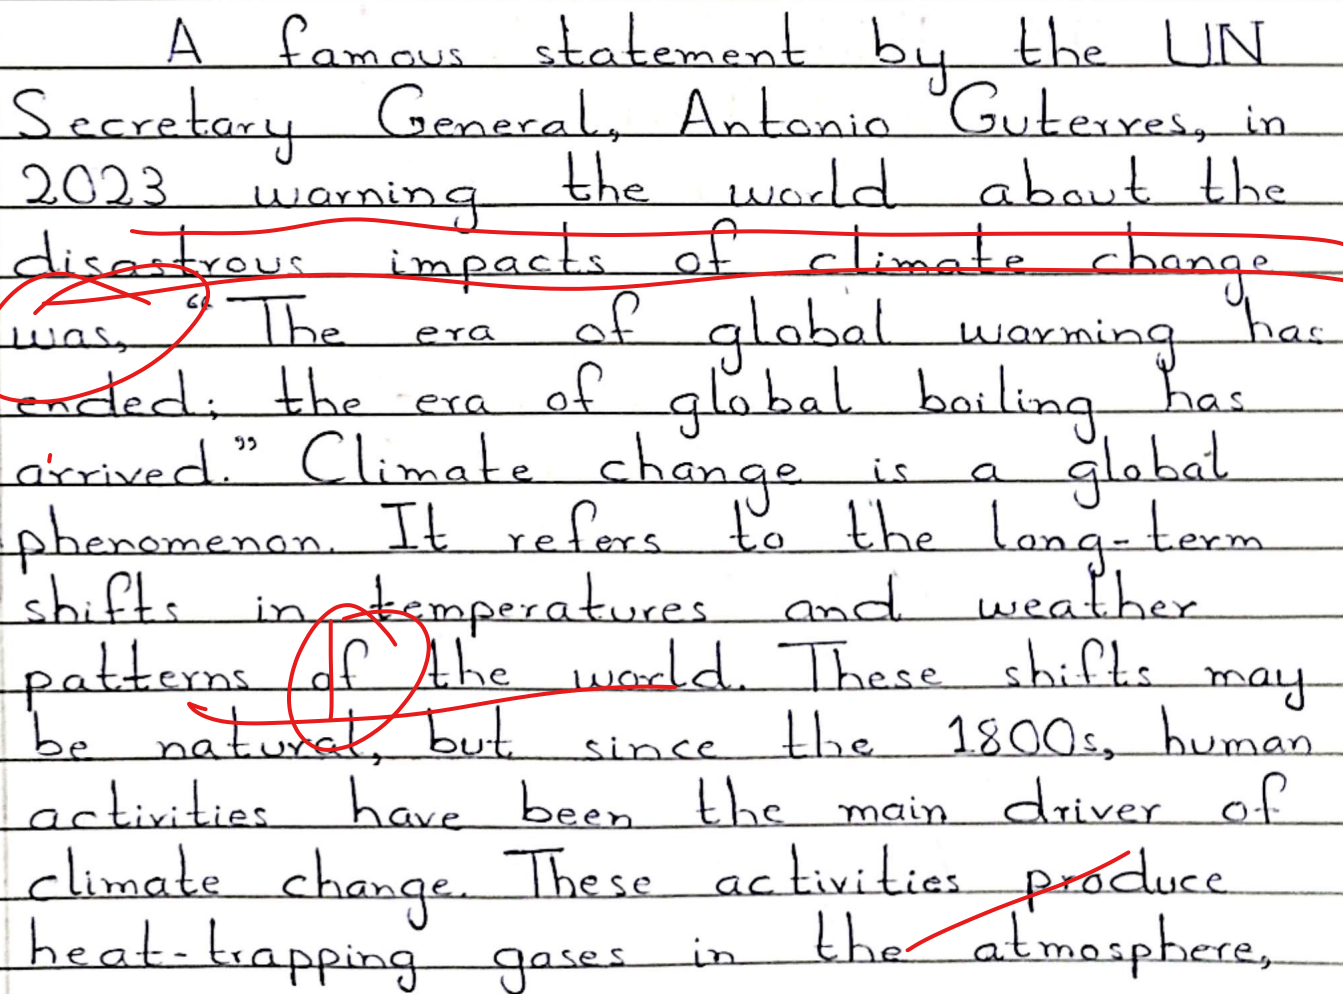 A famous statement by the UN
Secretary General, Antonio Guterres, in
2023 warning the world about the
disastrous impacts of climate change
was, “The era of global warming has
ended; the era of global boiling has
arrived.” Climate change is a global
phenomenon. It refers to the long-term
shifts in temperatures and weather
patterns of the world. These shifts may
be natural, but since the 1800s, human
activities have been the main driver of
climate change. These activities produce
heat-trapping gases in the atmosphere,